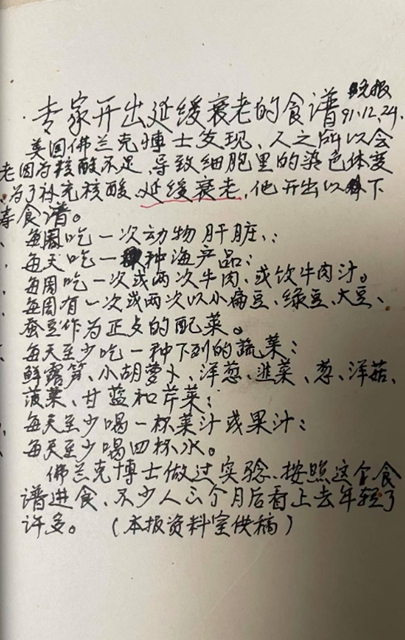 晚报
专家开出延缓衰老的食谱 91.12.24.
美国佛兰克博士发现,人之所以会
老因为核酸不足,导致细胞里的染色体变
为了补充核酸、延缓衰老,他开出以下
寿食谱。
每周吃一次动物肝脏;
每天吃一种海产品;
每周吃一次或两次牛肉,或饮牛肉汁。
每周有一次或两次以小扁豆、绿豆、大豆、
蚕豆作为正点的配菜。
每天至少吃一种下列的蔬菜:
鲜露笋、小胡萝卜、洋葱、韭菜、葱、洋菇、
菠菜、甘蓝和芹菜;
每天至少喝一杯菜汁或果汁;
每天至少喝四杯水。
佛兰克博士做过实验,按照这个食
谱进食,不少人三个月后看上去年轻了
许多。 (本报资料室供稿)